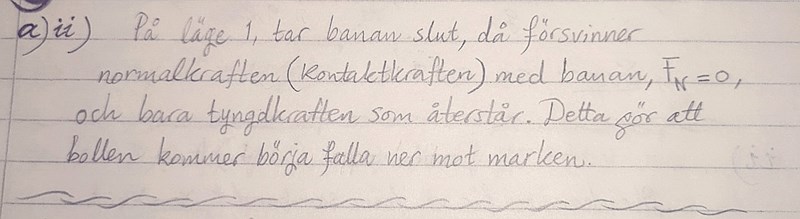 a) ii) På läge 1, tar banan slut, då försvinner
normalkraften (kontaktkraften) med banan, F_N = 0,
och bara tyngdkraften som återstår. Detta gör att
bollen kommer börja falla ner mot marken.